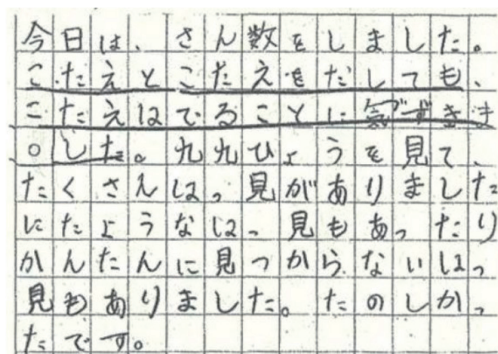 今日は、さん数をしました。
こたえとこたえをだしても、
こたえはでることに気ずきま
した。九九ひょうを見て、
たくさんはっ見がありました
にたようなはっ見もあったり
かんたんに見つからないはっ
見もありました。たのしかっ
たです。